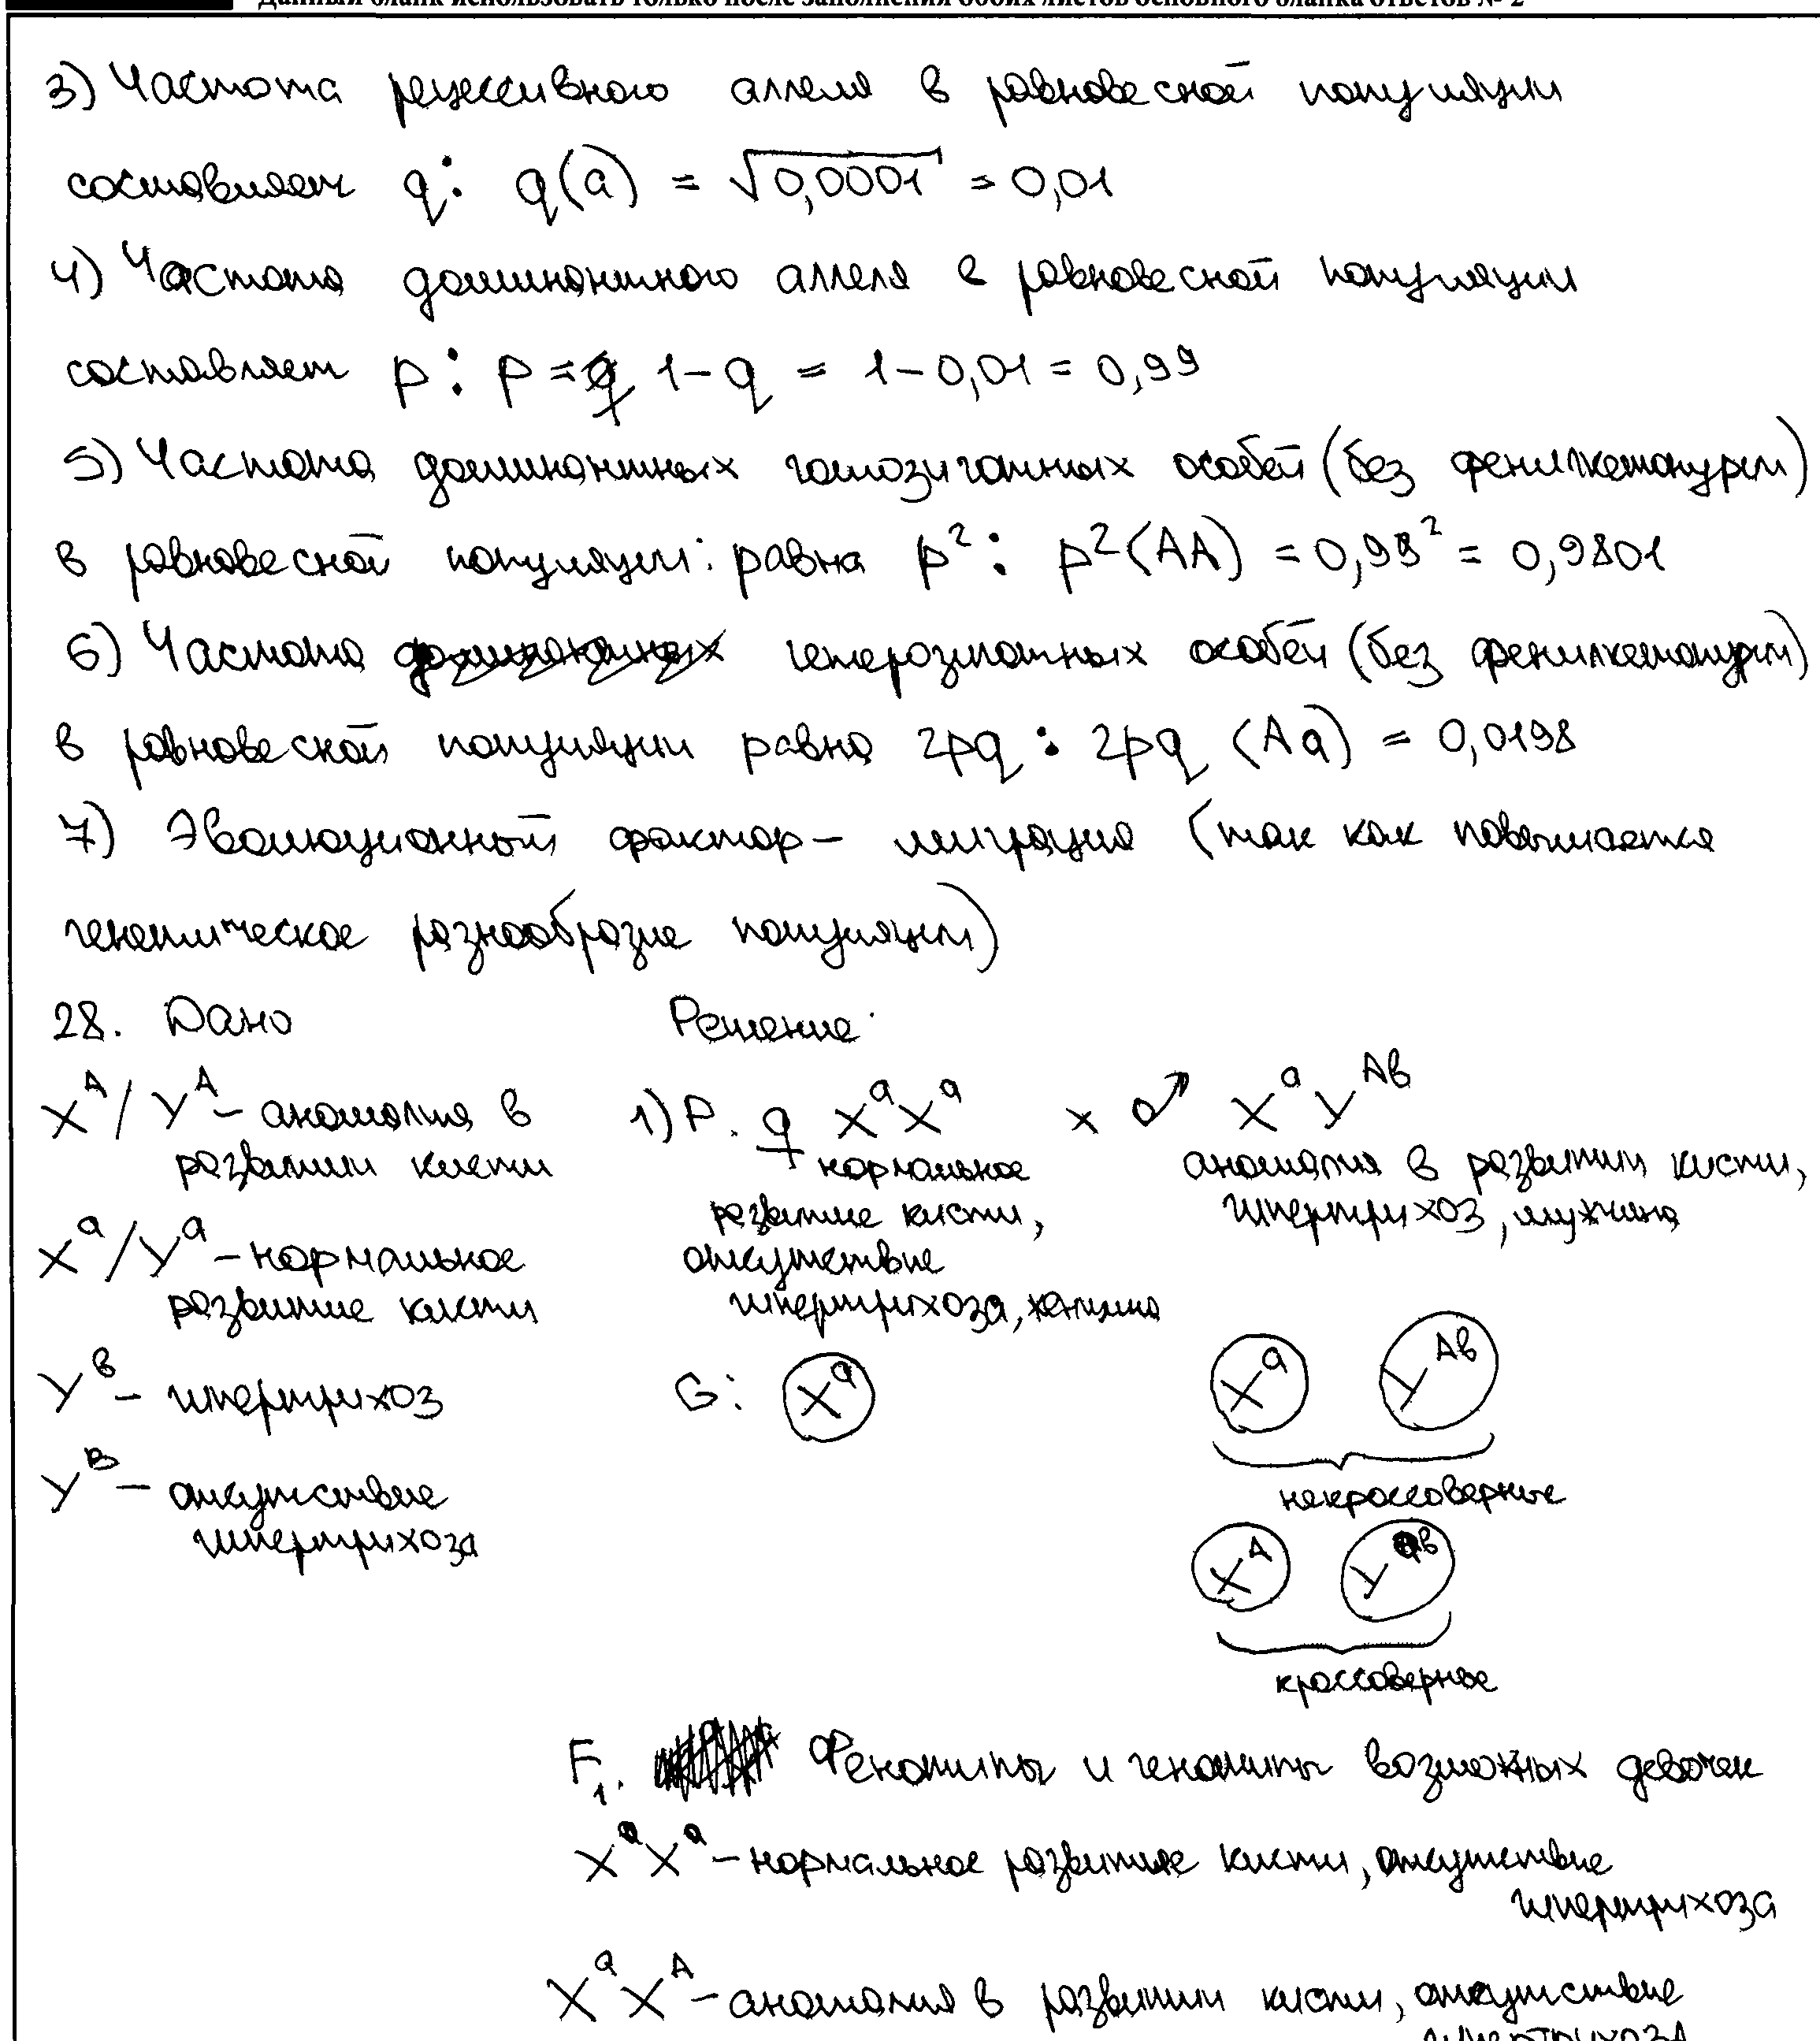 Данный бланк использовать только после заполнения обоих листов основного бланка ответов № 2
3) Частота рецессивного аллеля в равновесной популяции
составляет q: q(a) = √0,0001 = 0,01
4) Частота доминантного аллеля в равновесной популяции
составляет p: p = 1-q = 1-0,01 = 0,99
5) Частота доминантных гомозиготных особей (без фенилкетонурии)
в равновесной популяции: равна p²: p²(AA) = 0,99² = 0,9801
6) Частота гетерозиготных особей (без фенилкетонурии)
в равновесной популяции равна 2pq: 2pq (Aa) = 0,0198
7) Эволюционный фактор - миграция (так как повышается
генетическое разнообразие популяции)
28. Дано Решение:
X^A/Y^A - аномалия в 1) P. ♀ X^a X^a x ♂ X^a Y^Ab
развитии кисти нормальное аномалия в развитии кисти,
развитие кисти, гипертрихоз, мужчина
X^a/Y^a - нормальное отсутствие
развитие кисти гипертрихоза, женщина
Y^b - гипертрихоз G: X^a X^a Y^Ab
Y^B - отсутствие некроссоверные
гипертрихоза
X^A Y^ab
кроссоверные
F1. Фенотипы и генотипы возможных девочек
X^a X^a - нормальное развитие кисти, отсутствие
гипертрихоза
X^a X^A - аномалия в развитии кисти, отсутствие
гипертрихоза